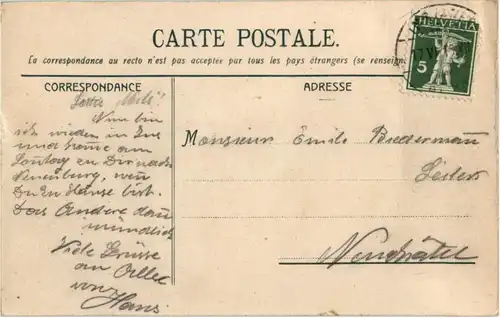 CARTE POSTALE.
La correspondance au recto n'est pas acceptée par tous les pays étrangers (se renseign
HELVETIA
5
CORRESPONDANCE
ADRESSE
Nun bin
ich wieder in
und komme am
Sontag zu Dir nach
Neuenburg, wen
Du zu Hause bist.
Das Andere dan
mündlich
Viele Grüsse
an Alle
von
Hans.
Monsieur Emile Biedermann
Neuchâtel